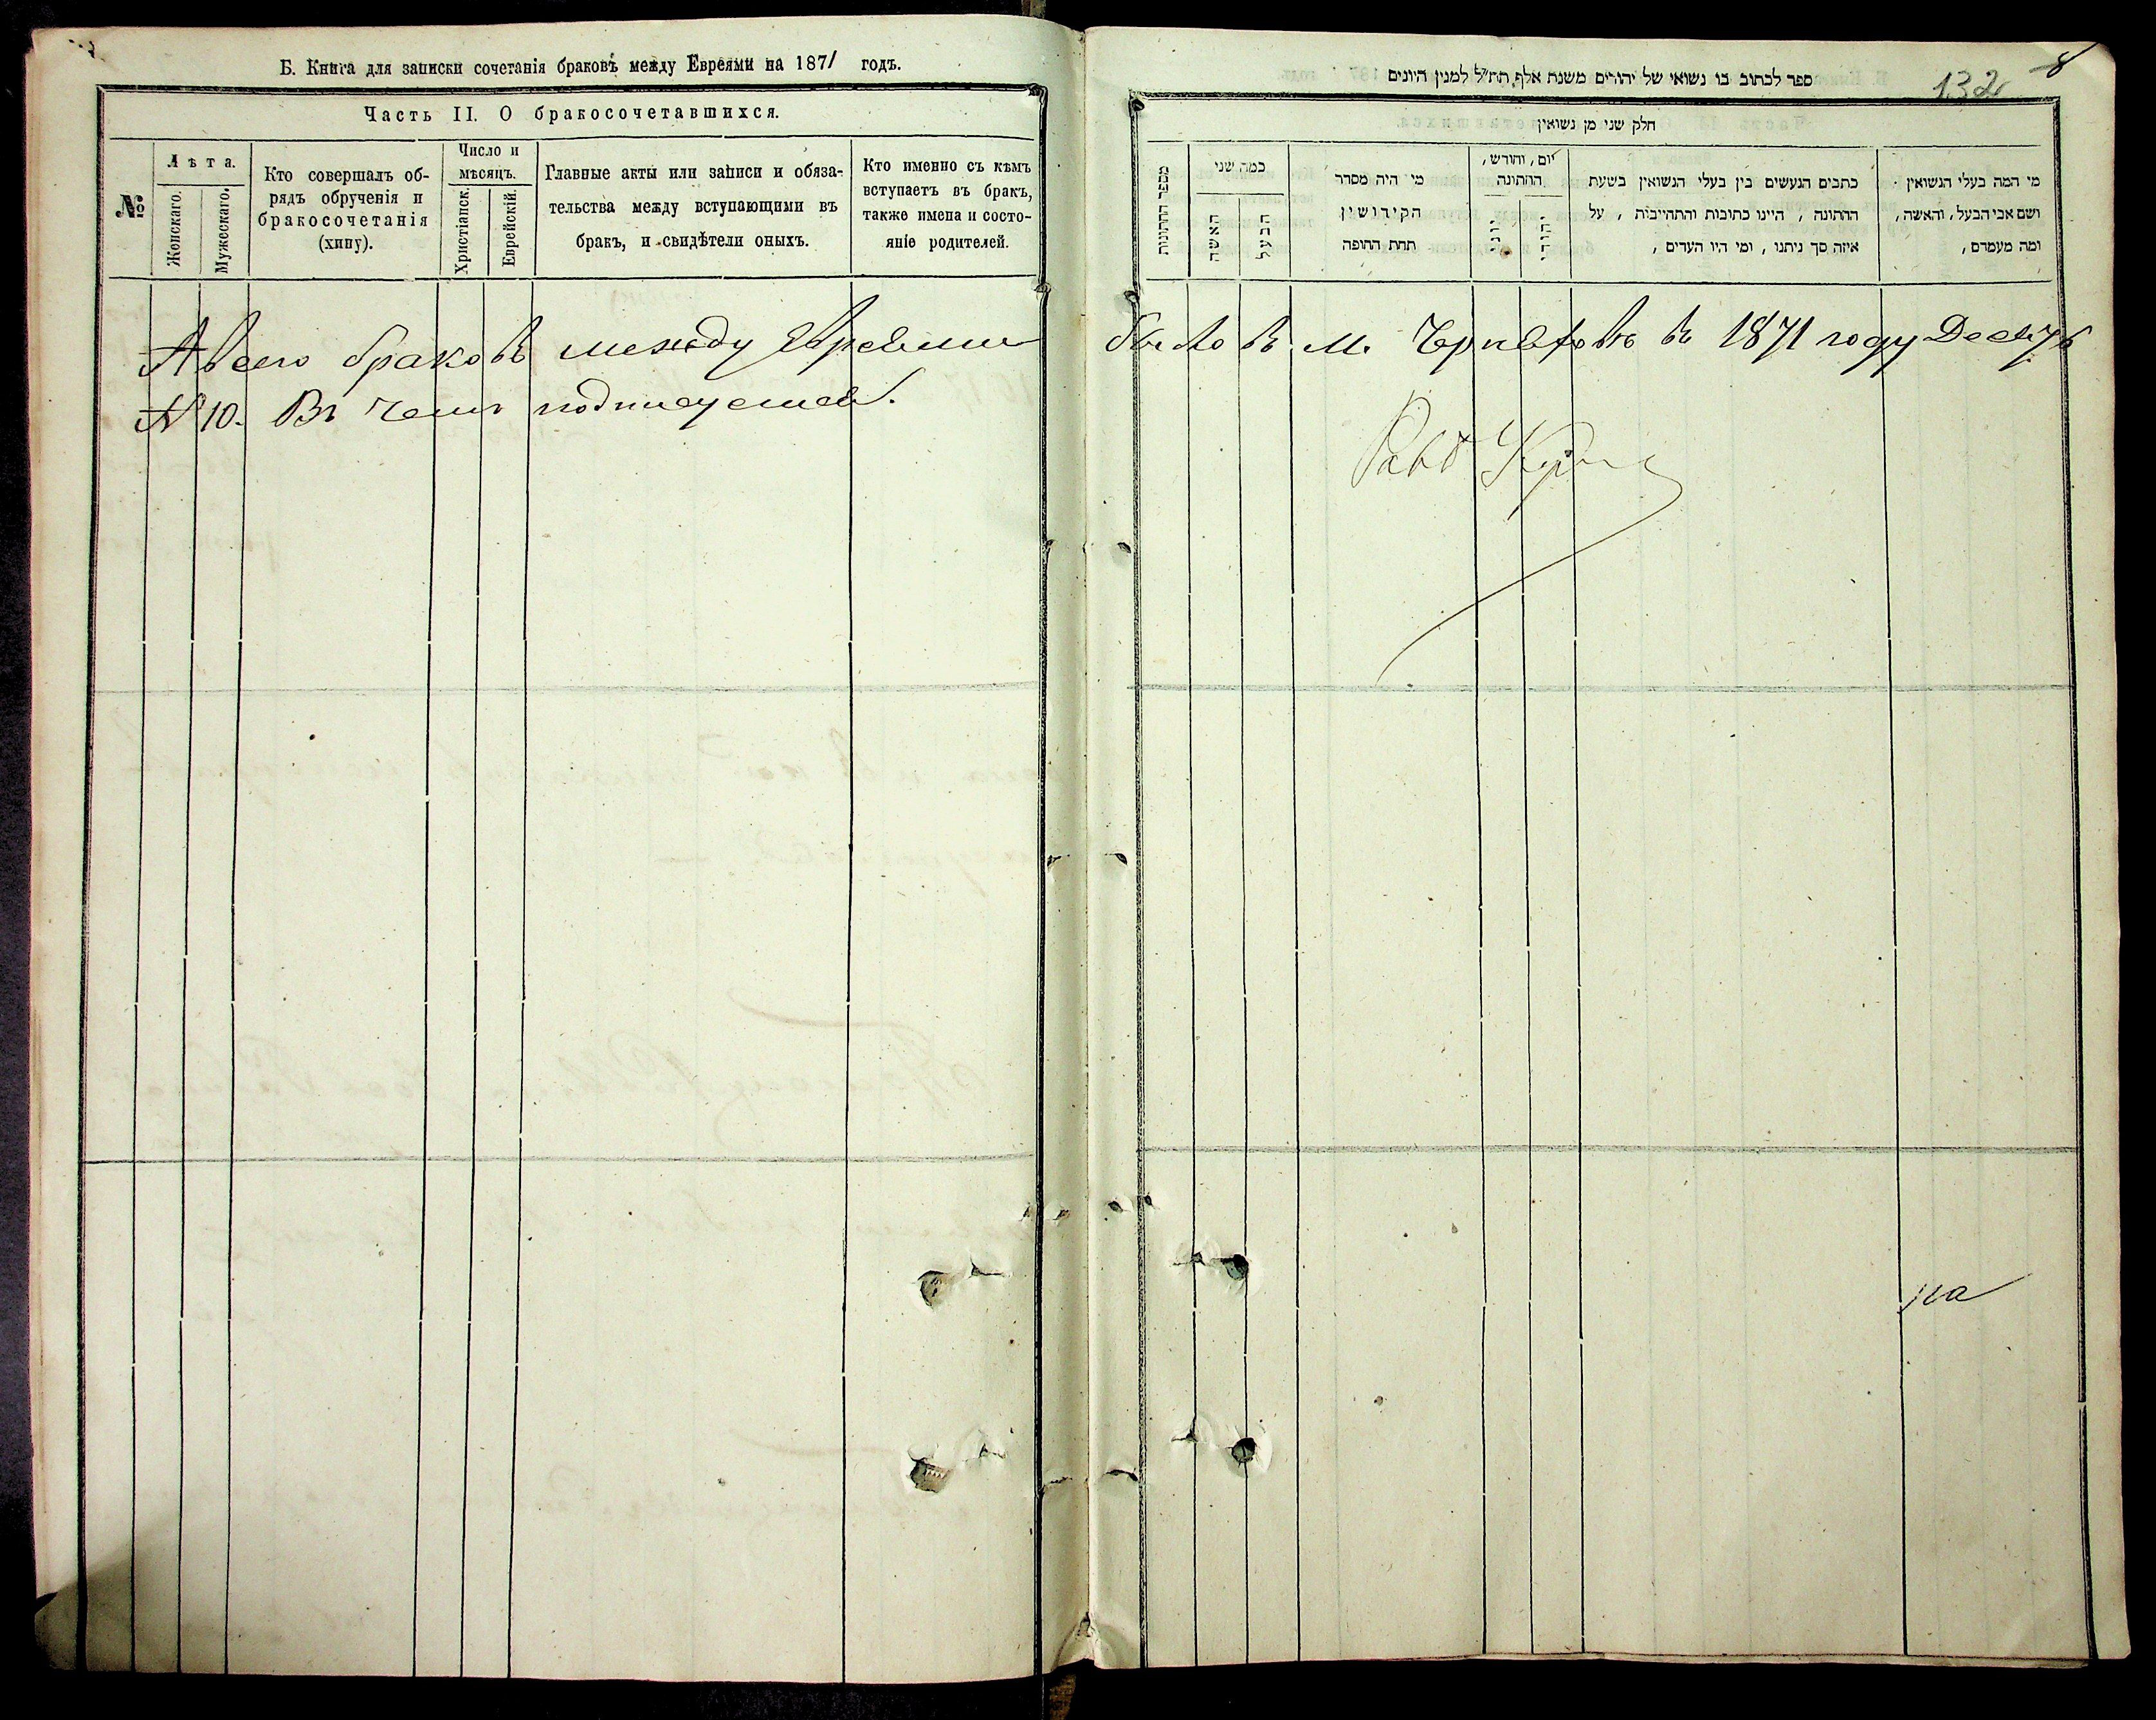 Б. Книга для записки сочетанія браковъ между Евреями на 1871 годъ.
Часть II. О бракосочетавшихся.
№
Лѣта.
Женскаго.
Мужескаго.
Кто совершалъ об-
рядъ обрученія и
бракосочетанія
(хипу).
Число и
мѣсяцъ.
Христіанск.
Еврейскій.
Главные акты или записи и обяза-
тельства между вступающими въ
бракъ, и свидѣтели оныхъ.
Кто именно съ кѣмъ
вступаетъ въ бракъ,
также имена и состо-
яніе родителей.
А всего браковъ между Евреями
№ 10. Въ чемъ подписуемся.
132
8
ספר לכתוב בו נשואי של יהודים משנת אלף תת״ל למנין היונים
חלק שני מן נשואין
מספר החתונות
כמה שני
האשה
הבעל
מי היה מסדר
הקידושין
תחת החופה
יום, וחודש,
החתונה
יוני
יהודי
כתבים הנעשים בין בעלי הנשואין בשעת
החתונה, היינו כתובות והתחייבות, על
איזה סך ניתנו, ומי היו העדים,
מי המה בעלי הנשואין
ושם אבי הבעל, והאשה,
ומה מעמדם,
было въ м. въ 1871 году Десять